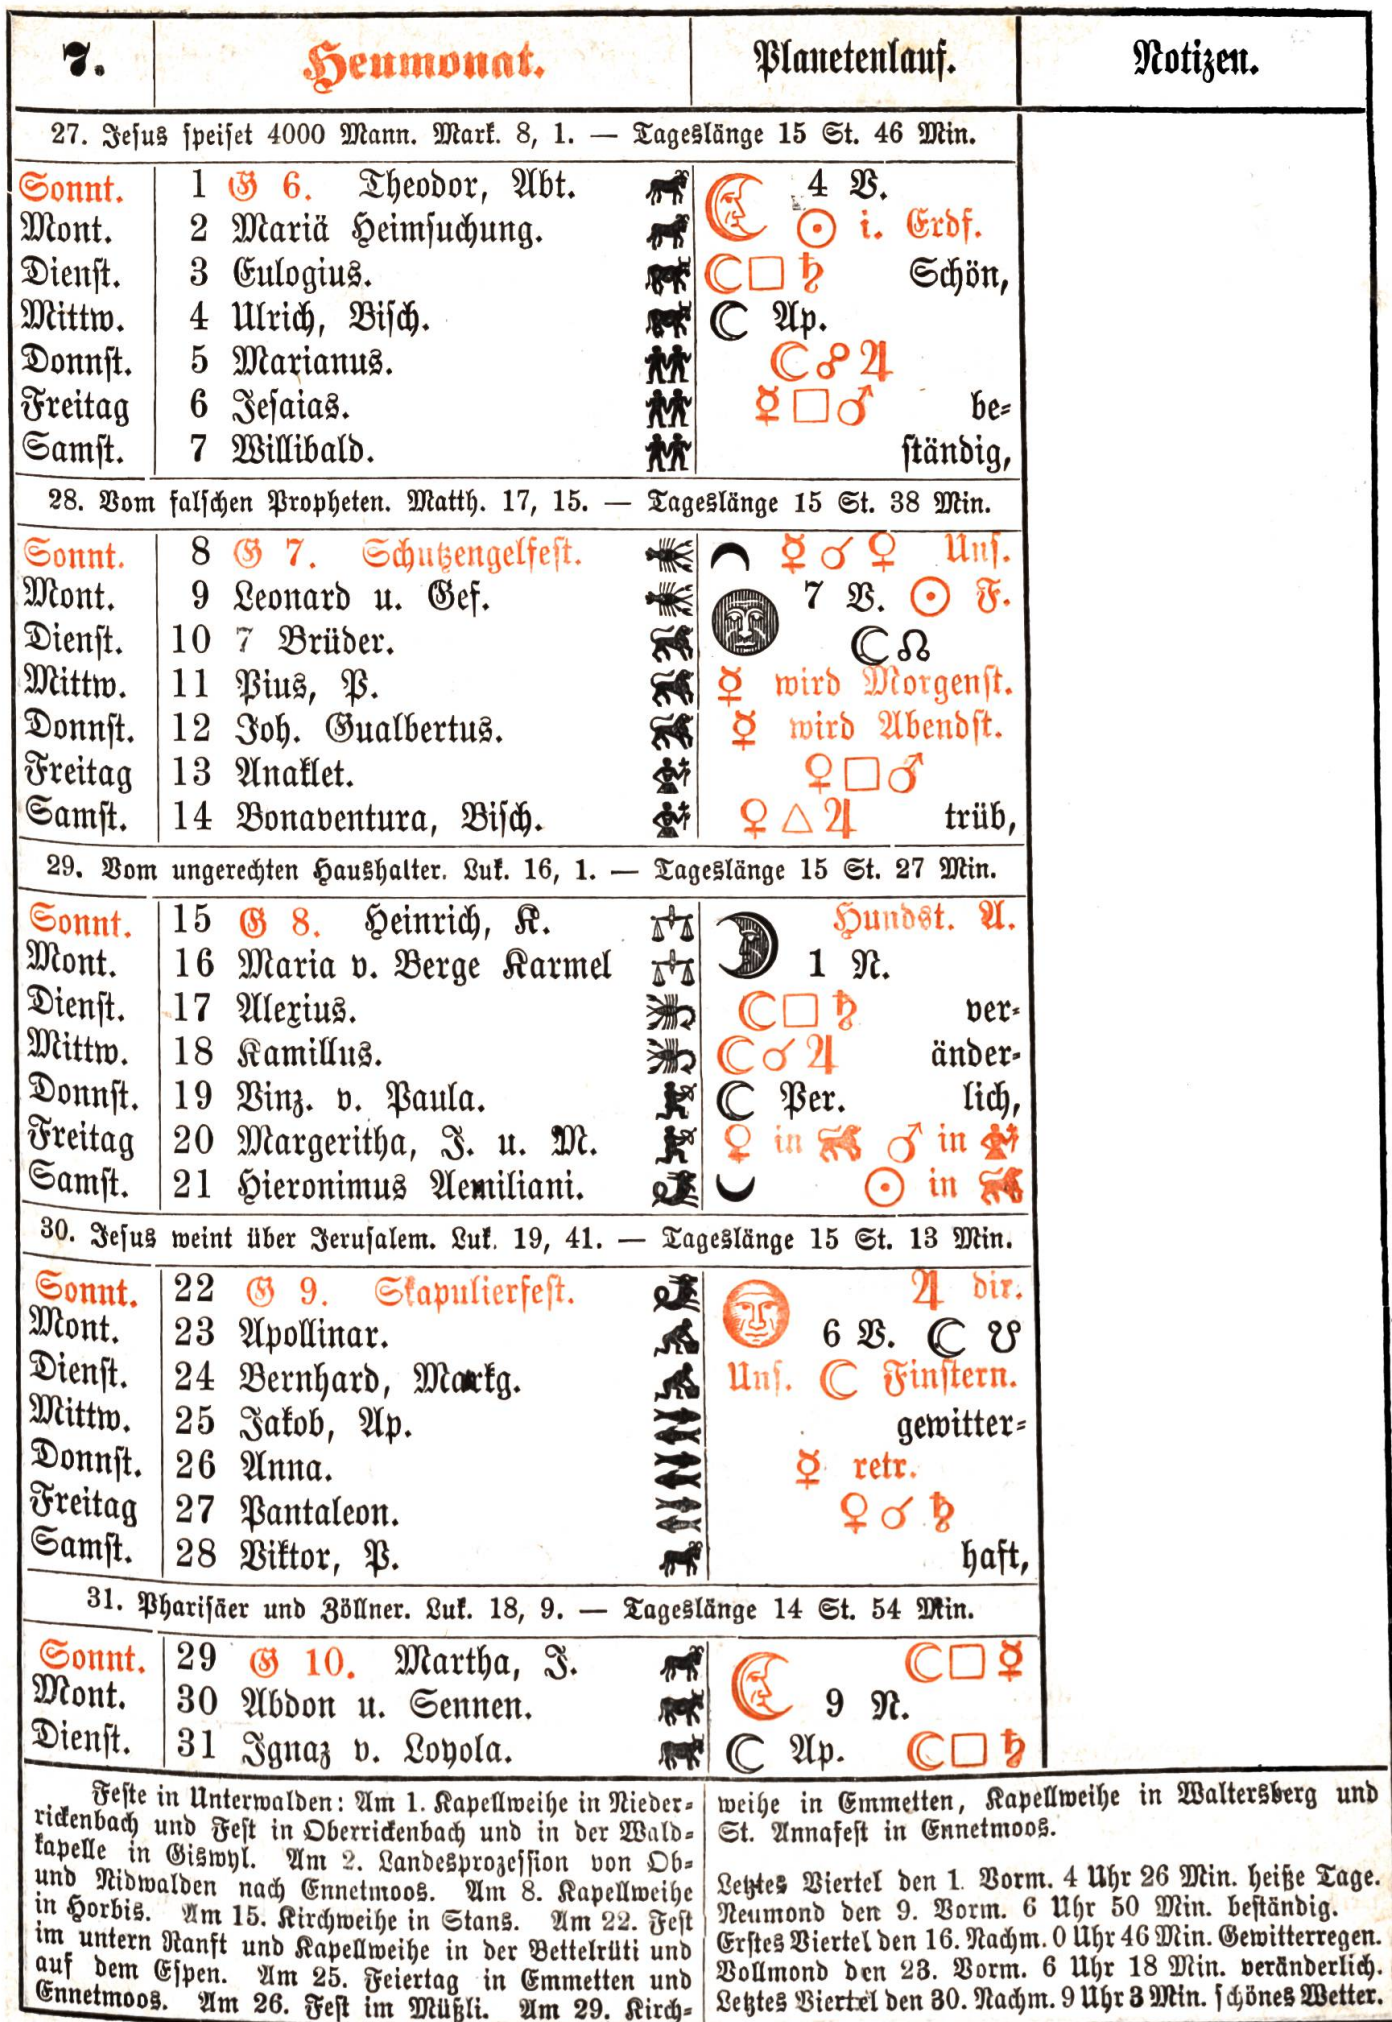 7. Heumonat. Planetenlauf. Notizen.
27. Jesus speiset 4000 Mann. Mark. 8, 1. — Tageslänge 15 St. 46 Min.
Sonnt. 1 G 6. Theodor, Abt. 4 V.
Mont. 2 Mariä Heimsuchung. ☉ i. Erdf.
Dienst. 3 Eulogius. ☾□♄ Schön,
Mittw. 4 Ulrich, Bisch. ☾ Ap.
Donnst. 5 Marianus. ☾☍♃
Freitag 6 Jesaias. ☿□♂ be=
Samst. 7 Willibald. ständig,
28. Vom falschen Propheten. Matth. 17, 15. — Tageslänge 15 St. 38 Min.
Sonnt. 8 G 7. Schutzengelfest. ☿☌♀ Uns.
Mont. 9 Leonard u. Gef. 7 V. ☉ F.
Dienst. 10 7 Brüder. ☾☊
Mittw. 11 Pius, P. ☿ wird Morgenst.
Donnst. 12 Joh. Gualbertus. ☿ wird Abendst.
Freitag 13 Anaklet. ♀□♂
Samst. 14 Bonaventura, Bisch. ♀△♃ trüb,
29. Vom ungerechten Haushalter. Luk. 16, 1. — Tageslänge 15 St. 27 Min.
Sonnt. 15 G 8. Heinrich, K. Hundst. A.
Mont. 16 Maria v. Berge Karmel 1 N.
Dienst. 17 Alexius. ☾□♄ ver=
Mittw. 18 Kamillus. ☾☌♃ änder=
Donnst. 19 Vinz. v. Paula. ☾ Per. lich,
Freitag 20 Margeritha, J. u. M. ♀ in ♌ ♂ in ♍
Samst. 21 Hieronimus Aemiliani. ☉ in ♌
30. Jesus weint über Jerusalem. Luk. 19, 41. — Tageslänge 15 St. 13 Min.
Sonnt. 22 G 9. Skapulierfest. ♃ dir.
Mont. 23 Apollinar. 6 V. ☾ ☋
Dienst. 24 Bernhard, Markg. Uns. ☾ Finstern.
Mittw. 25 Jakob, Ap. gewitter=
Donnst. 26 Anna. ☿ retr.
Freitag 27 Pantaleon. ♀☌♄
Samst. 28 Viktor, P. haft,
31. Pharisäer und Zöllner. Luk. 18, 9. — Tageslänge 14 St. 54 Min.
Sonnt. 29 G 10. Martha, J. ☾□☿
Mont. 30 Abdon u. Sennen. 9 N.
Dienst. 31 Ignaz v. Loyola. ☾ Ap. ☾□♄
Feste in Unterwalden: Am 1. Kapellweihe in Nieder=
rickenbach und Fest in Oberrickenbach und in der Wald=
kapelle in Giswyl. Am 2. Landesprozession von Ob=
und Nidwalden nach Ennetmoos. Am 8. Kapellweihe
in Horbis. Am 15. Kirchweihe in Stans. Am 22. Fest
im untern Ranft und Kapellweihe in der Bettelrüti und
auf dem Espen. Am 25. Feiertag in Emmetten und
Ennetmoos. Am 26. Fest im Müßli. Am 29. Kirch=
weihe in Emmetten, Kapellweihe in Waltersberg und
St. Annafest in Ennetmoos.
Letztes Viertel den 1. Vorm. 4 Uhr 26 Min. heiße Tage.
Neumond den 9. Vorm. 6 Uhr 50 Min. beständig.
Erstes Viertel den 16. Nachm. 0 Uhr 46 Min. Gewitterregen.
Vollmond den 23. Vorm. 6 Uhr 18 Min. veränderlich.
Letztes Viertel den 30. Nachm. 9 Uhr 3 Min. schönes Wetter.